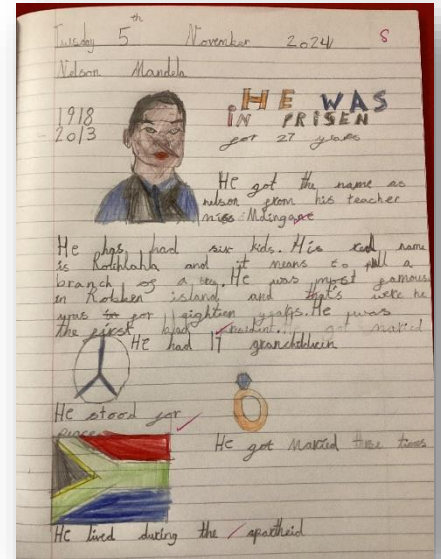 Tuesday 5th November 2024 S
Nelson Mandela
1918
2013
HE WAS
iN PRISEN
for 27 years
He got the name as
nelson from his teacher
miss Mdingane
He has had six kids. His real name
is Rolihlahla and it means to pull a
branch of a tree. He was most famous
in Robben island and thats were he
was for eightien years. He was
the first got maried
He had 17 grandchildrein
He stood for
peace
He got Maried three times
He lived during the apartheid